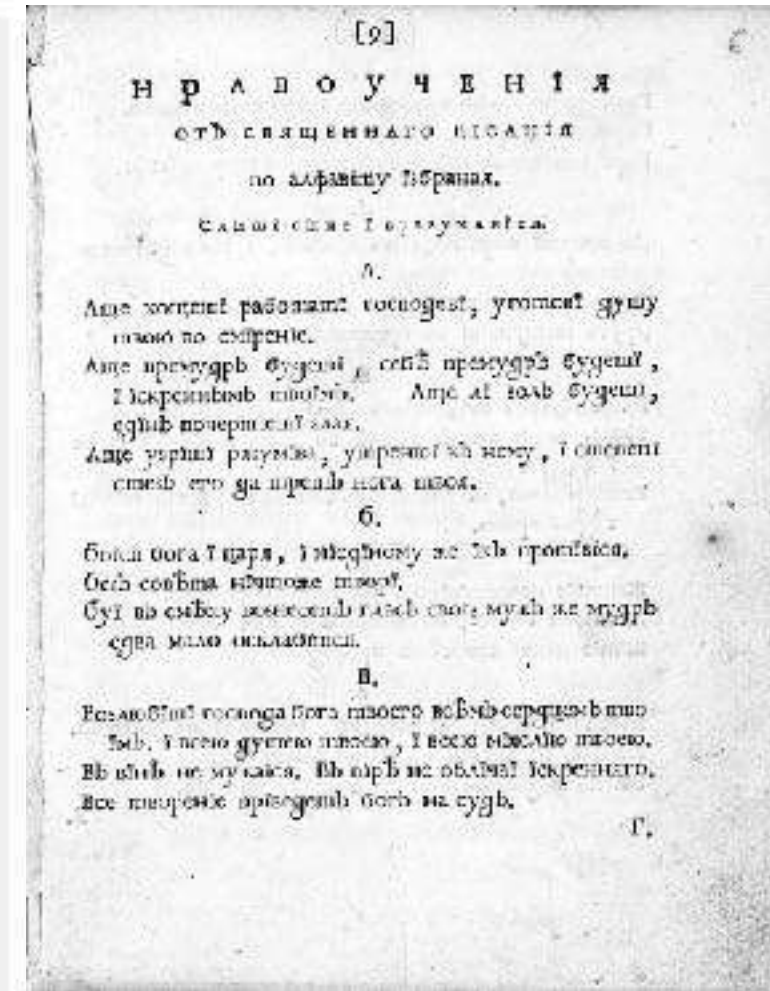 [9]
НРАВОУЧЕНІЯ
ОТЪ СВЯЩЕННАГО ПІСАНІЯ
по алфавіту ізбраная.
Слыші сыне і
А.
Аще хощеші работаті господеві, уготові душу
твою во
Аще премудръ будеші, себѣ премудръ будеші,
і іскреннымъ твоімъ. Аще лі золъ будеші,
едінъ почерпнеші злая.
Аще узріші разуміва, утренюі къ нему, і степені
его да третъ нога твоя.
Б.
Боіся бога і царя, і ніедіному же іхъ протівіся.
Безъ совѣта нічтоже творі.
Буі въ смѣху возносітъ гласъ свой мужъ же мудръ
едва мало осклабітся.
В.
Возлюбіші господа бога твоего всѣмъ сердцемъ тво
імъ. і всею душею твоею, і всею мыслію твоею.
Въ вінѣ не мужаіся. Въ пірѣ не облічаі іскреннаго.
Все твореніе пріведетъ богъ на судъ.
Г.